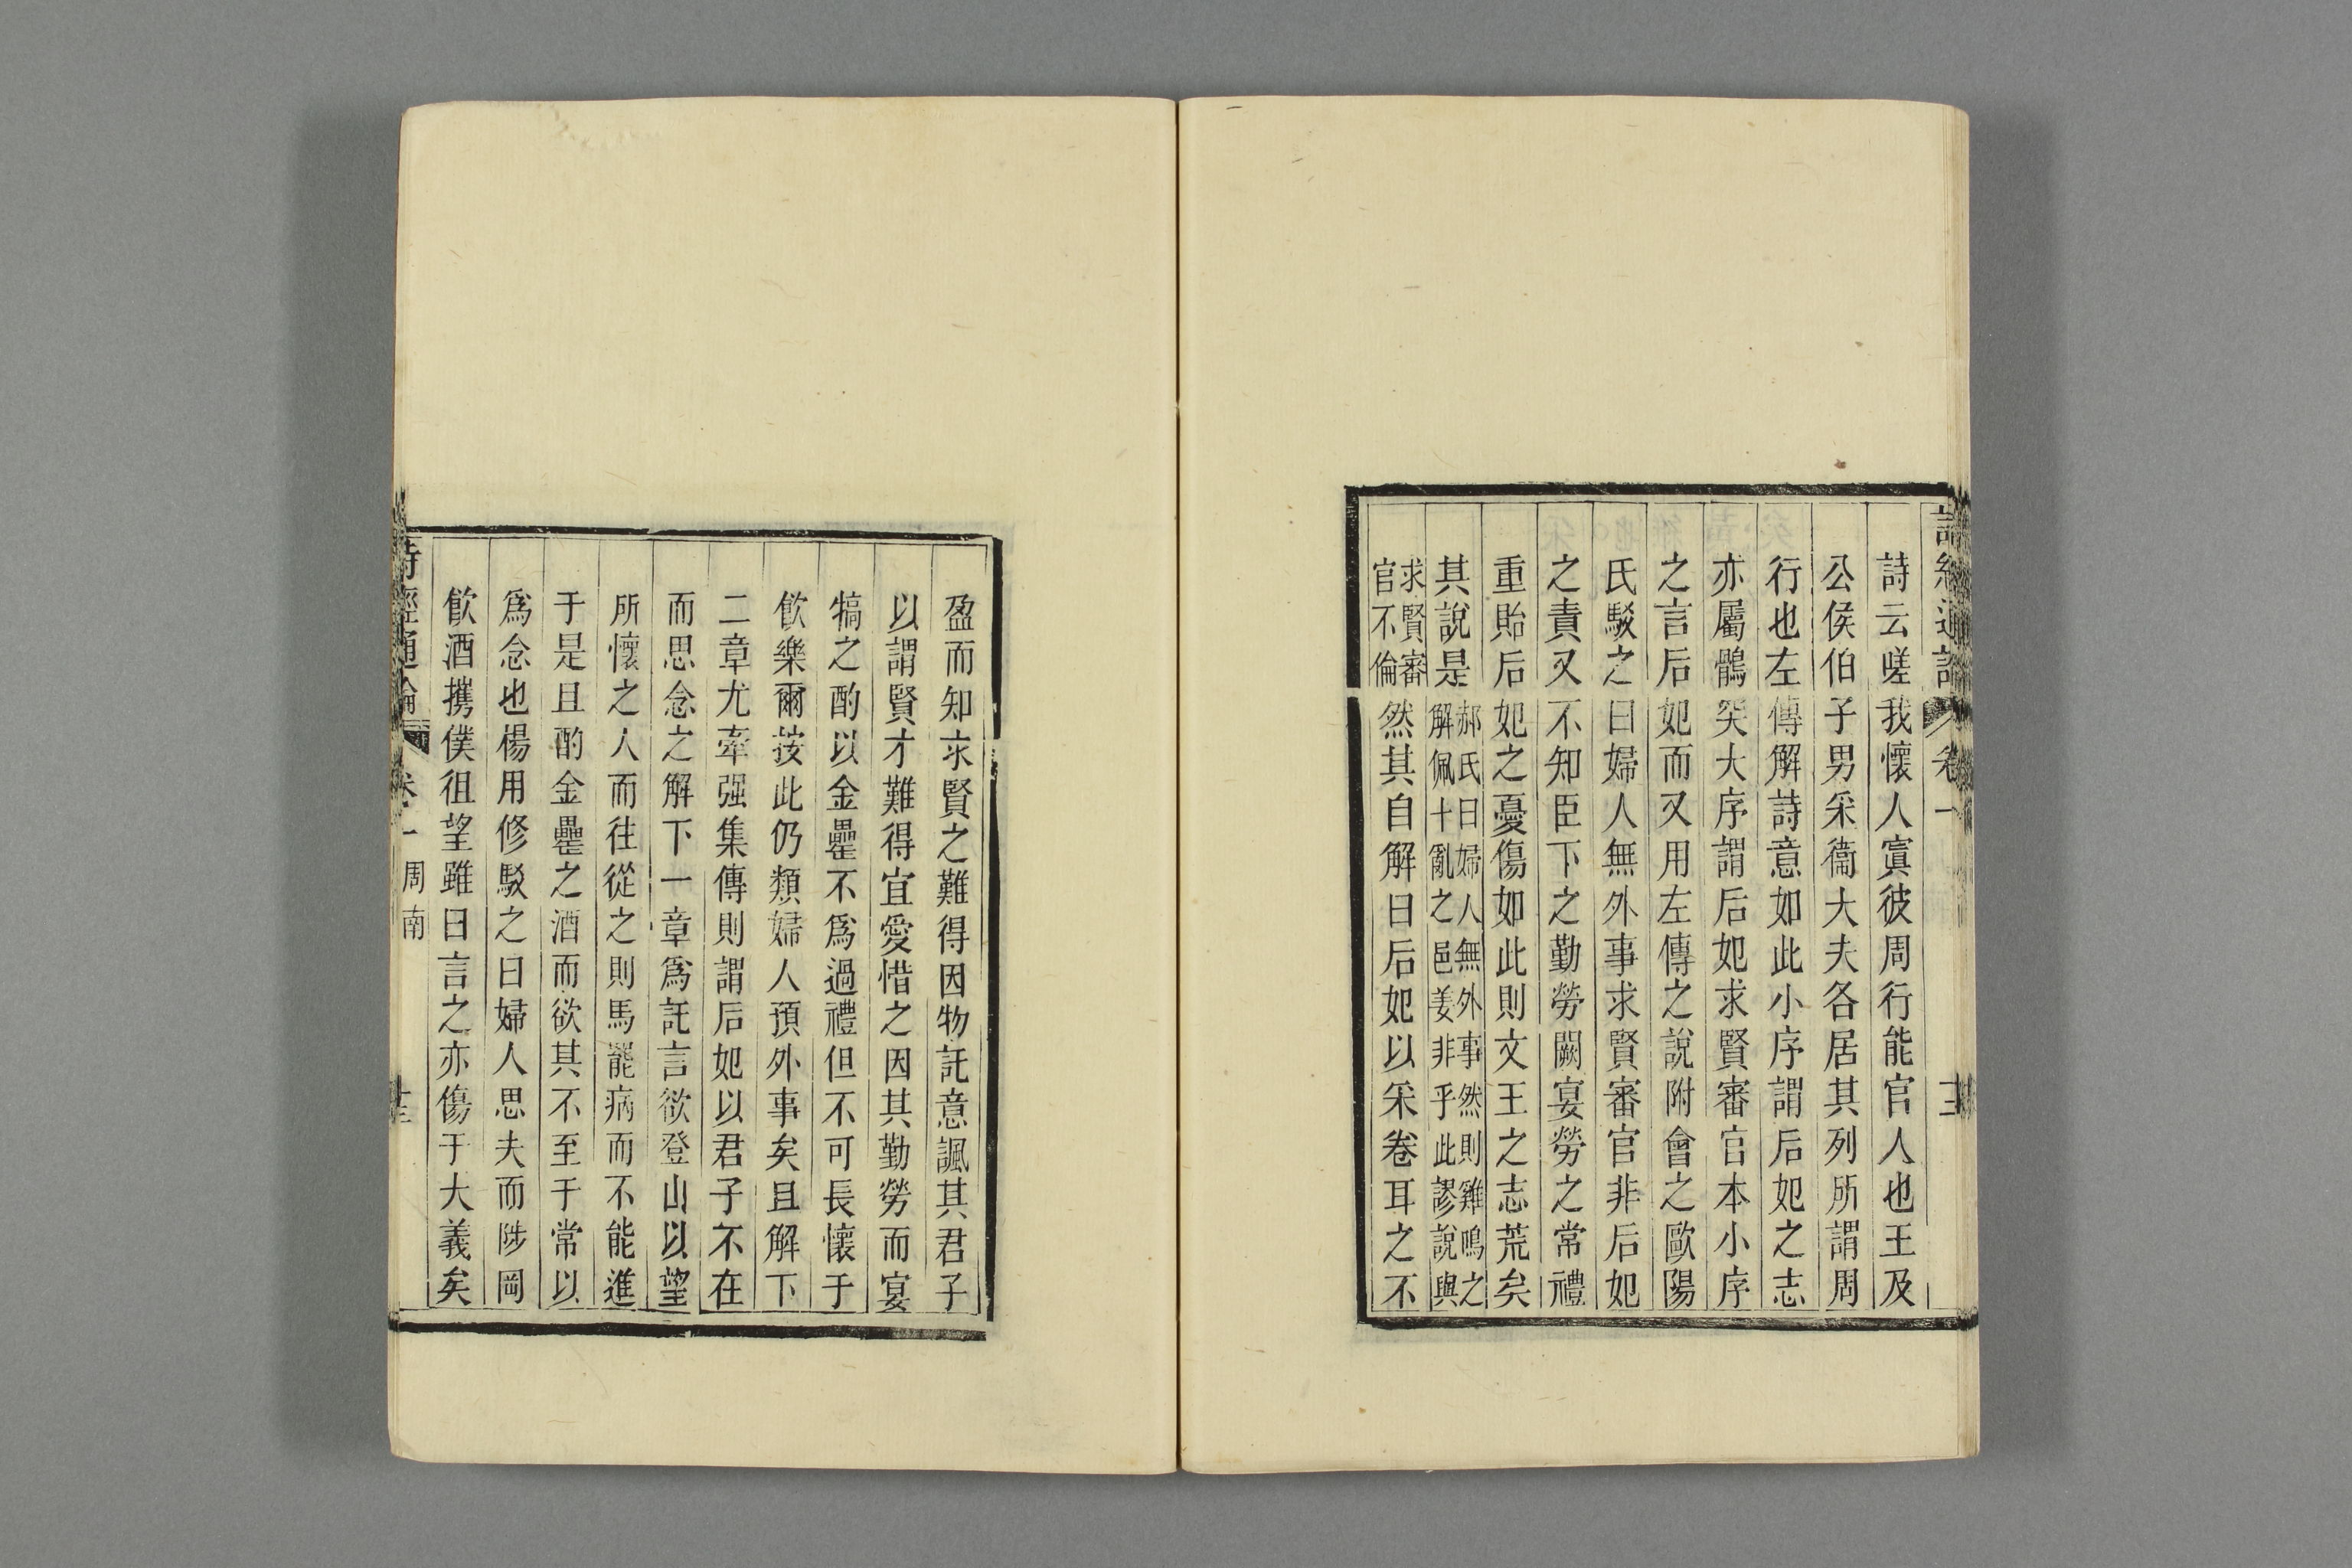 詩經通論 卷一 十二
詩云嗟我懷人寘彼周行能官人也王及
公侯伯子男采衞大夫各居其列所謂周
行也左傳解詩意如此小序謂后妃之志
亦屬鶻突大序謂后妃求賢審官本小序
之言后妃而又用左傳之說附會之歐陽
氏駁之曰婦人無外事求賢審官非后妃
之責又不知臣下之勤勞闕宴勞之常禮
重貽后妃之憂傷如此則文王之志荒矣
其說是
郝氏曰婦人無外事然則雞鳴之
解佩十亂之邑姜非乎此謬說與
求賢審
官不倫
然其自解曰后妃以采卷耳之不
盈而知求賢之難得因物託意諷其君子
以謂賢才難得宜愛惜之因其勤勞而宴
犒之酌以金罍不爲過禮但不可長懷于
飮樂爾按此仍類婦人預外事矣且解下
二章尤牽强集傳則謂后妃以君子不在
而思念之解下一章爲託言欲登山以望
所懷之人而往從之則馬罷病而不能進
于是且酌金罍之酒而欲其不至于常以
爲念也楊用修駁之曰婦人思夫而陟岡
飮酒攜僕徂望雖曰言之亦傷于大義矣
詩經通論 卷一 周南 十三